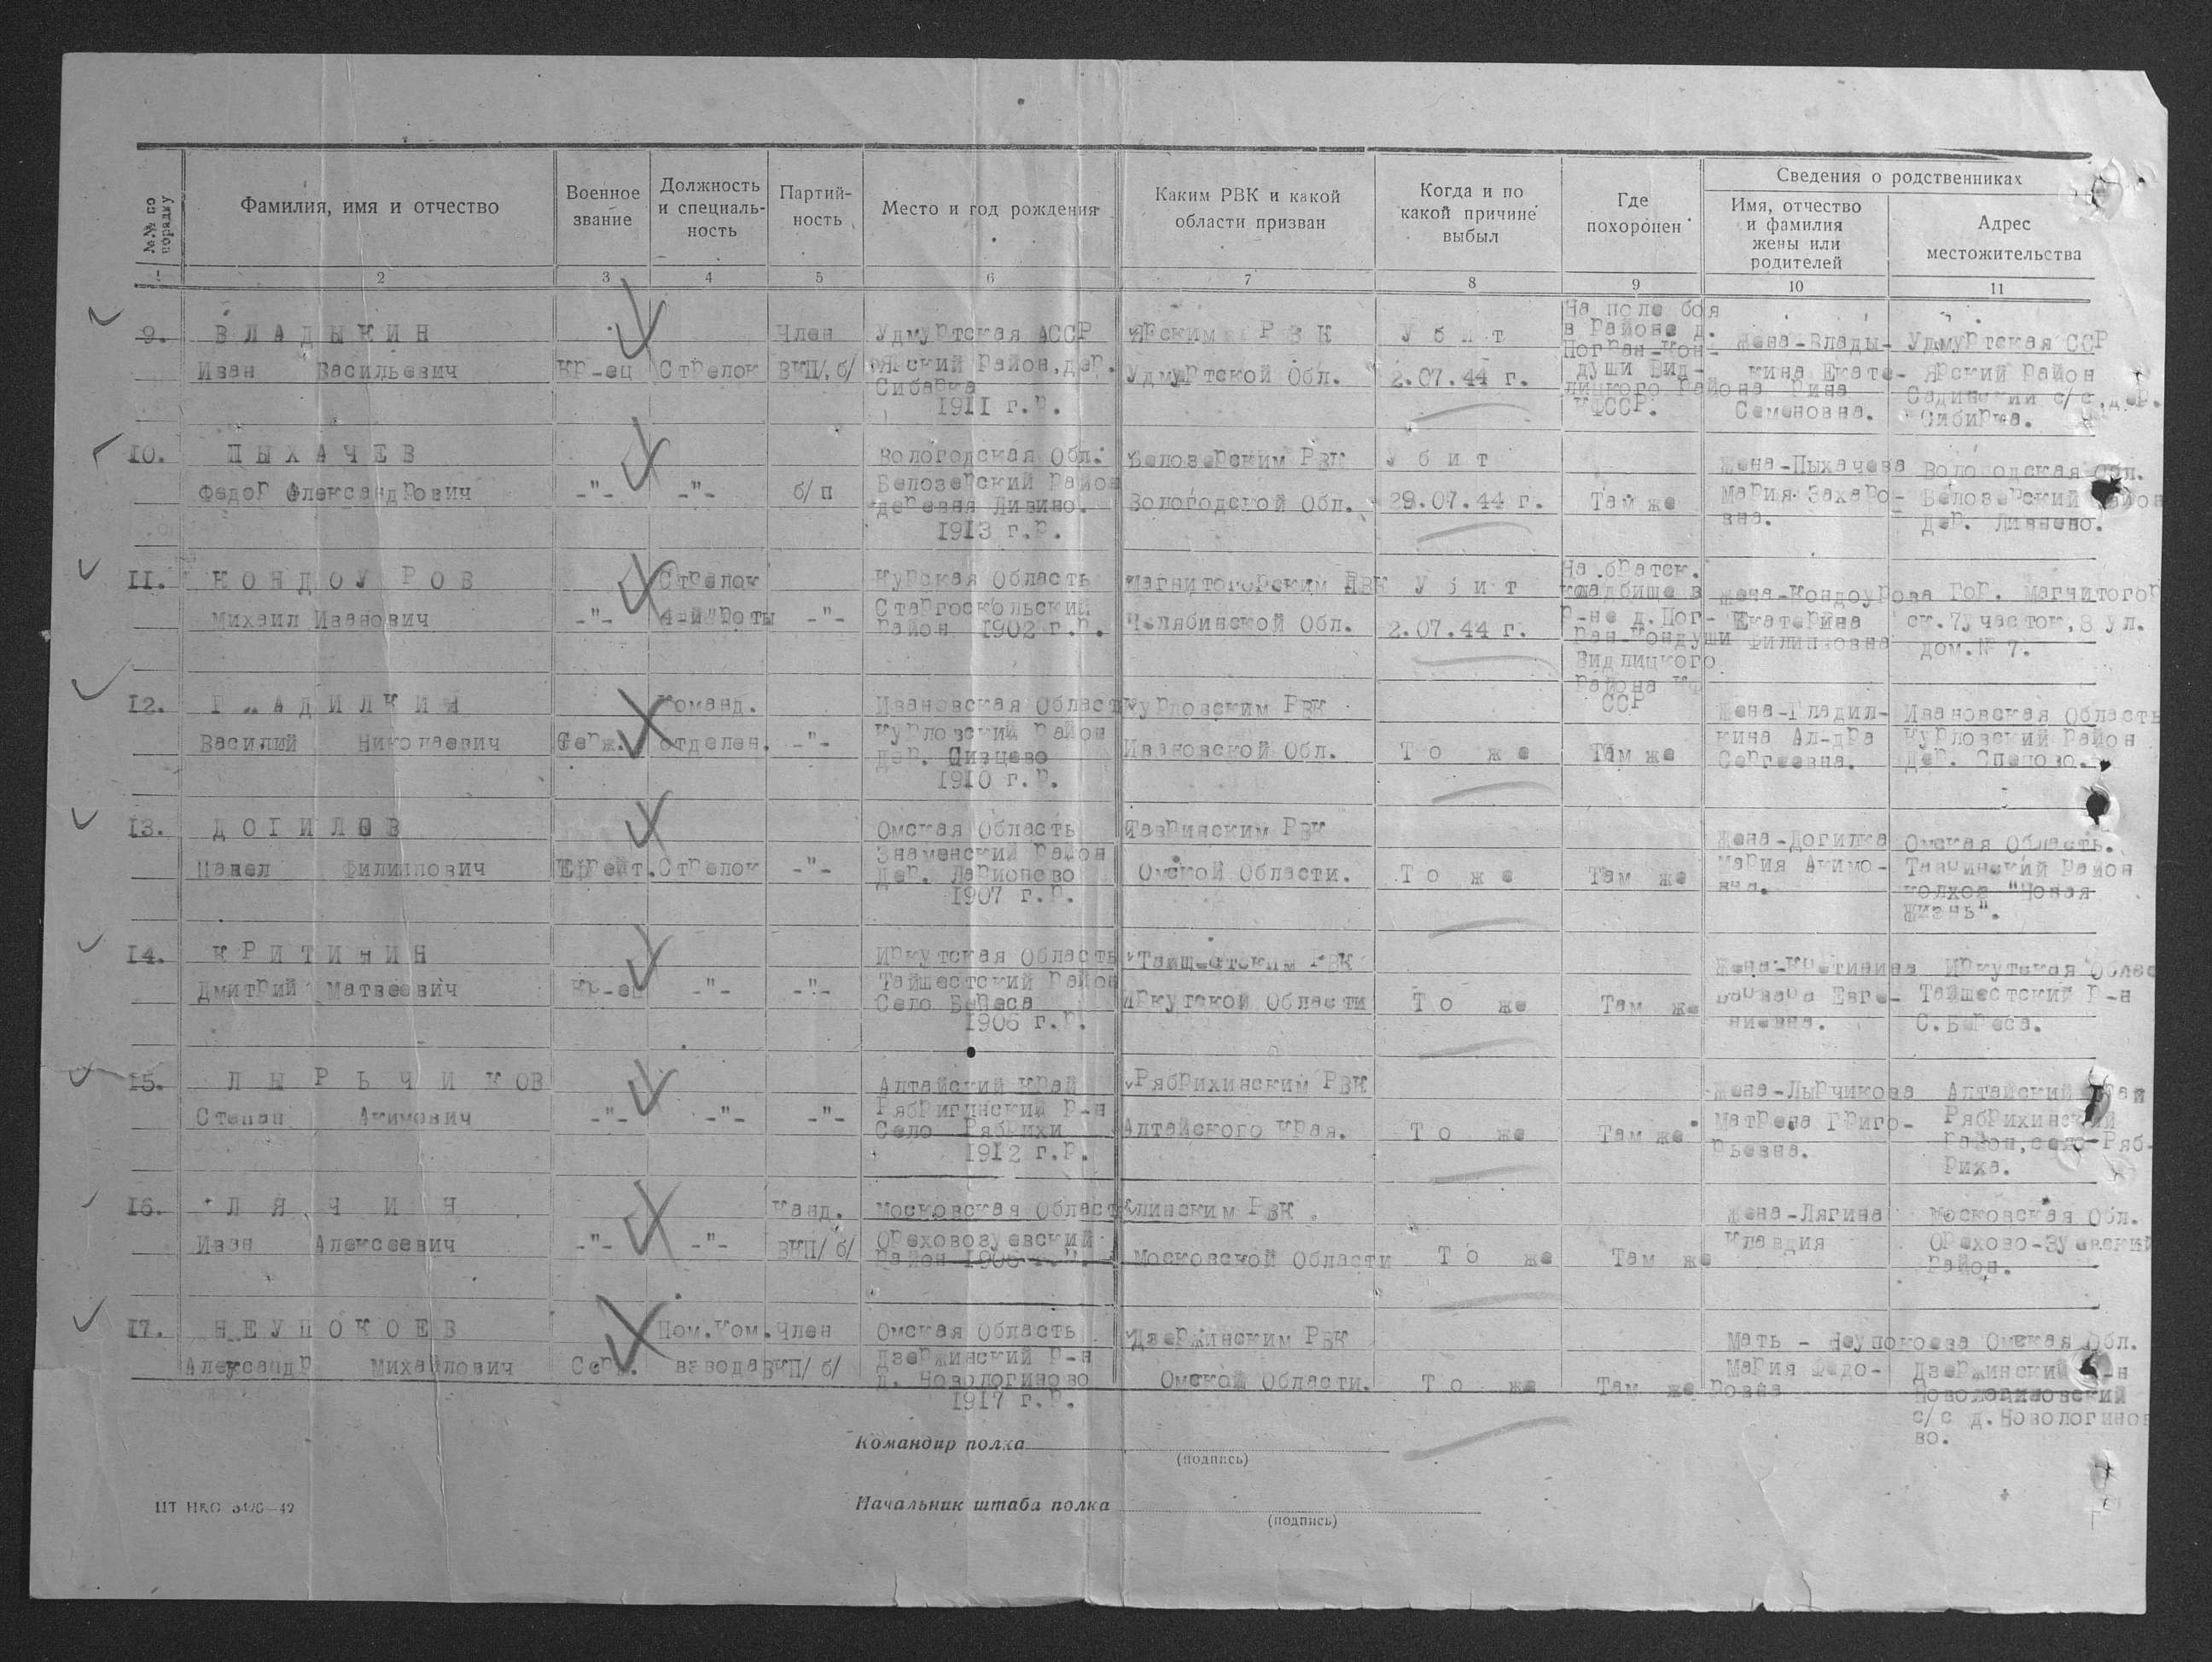 №№ по порядку
Фамилия, имя и отчество
Военное звание
Должность и специаль-ность
Партий-ность
Место и год рождения
Каким РВК и какой области призван
Когда и по какой причине выбыл
Где похоронен
Сведения о родственниках
Имя, отчество и фамилия жены или родителей
Адрес местожительства
1 2 3 4 5 6 7 8 9 10 11
9. ВЛАДЫКИН
Иван Васильевич
Кр-ец
Стрелок
Член
ВКП/б/
Удмуртская АССР
Ярский Район, дер.
Сибирка
1911 г.р.
Ярским РВК
Удмуртской Обл.
Убит
2.07.44 г.
На поле боя
в Районе д.
Погран-Кон-
души Вид-
лицкого Района
КФССР.
Жена-Влады-
кина Екате-
рина
Семеновна.
Удмуртская ССР
Ярский Район
с/с, дер.
Сибирка.
10. ПЫХАЧЕВ
Федор Александрович
-"-
-"-
б/п
Вологодская Обл.
Белозерский Район
деревня Ливино.
1913 г.р.
Белозерским РВК
Вологодской Обл.
Убит
29.07.44 г.
Там же
Жена-Пыхачева
Мария Захаро-
вна.
Вологодская Обл.
Белозерский Район
Дер.
11. КОНДОУРОВ
Михаил Иванович
-"-
Стрелок
4-й роты
-"-
Курская Область
Старгоскольский
Район 1902 г.р.
Магнитогорским РВК
Челябинской Обл.
Убит
2.07.44 г.
На братск.
кладбище в
Р-не д. Пог-
ран-Кондуши
Видлицкого
Района КФ
ССР
Жена-Кондоурова
Екатерина
Филипповна
Гор. Магнитогор
ск. 7участок, 8 ул.
дом.№ 7.
12. ГЛАДИЛКИН
Василий Николаевич
Серж.
Команд.
отделен.
-"-
Ивановская Область
Курловский Район
Дер. Сивцево
1910 г.р.
Курловским РВК
Ивановской Обл.
То же
Там же
Жена-Гладил-
кина Ал-дра
Сергеевна.
Ивановская Область
Курловский Район
Дер.
13. ДОГИЛОВ
Павел Филиппович
Ефрейт.
Стрелок
-"-
Омская Область
Знаменский Район
Дер. Ларионово
1907 г.р.
Тавринским РВК
Омской Области.
То же
Там же
Жена-Догилка
Мария Акимо-
вна.
Омская Область.
Тавринский Район
колхоз "Новая
Жизнь".
14. КРИТИНИН
Дмитрий Матвеевич
Кр-ец
-"-
-"-
Иркутская Область
Тайшестский Район
Село Береса
1906 г.р.
Тайшестским РВК
Иркутской Области
То же
Там же
Жена-Критинина
Варвара Евге-
ниевна.
Иркутская Облас
Тайшестский Р-н
С. Береса.
15. ЛЫРЬЧИКОВ
Степан Акимович
-"-
-"-
-"-
Алтайский Край
Рябригинский Р-н
Село Рябрихи
1912 г.р.
Рябрихинским РВК
Алтайского Края.
То же
Там же
Жена-Лырчикова
Матрена Григо-
рьевна.
Алтайский Край
Рябрихинский
Район, село Ряб-
риха.
16. ЛЯЧИН
Иван Алексеевич
-"-
-"-
Канд.
ВКП/б/
Московская Област
Ореховозуевский
Район 1906 г.р.
Клинским РВК.
Московской Области
То же
Там же
Жена-Лягина
Клавдия
Московская Обл.
Орехово-Зуевский
Район.
17. НЕУПОКОЕВ
Александр Михайлович
Серж.
Пом.Ком.
взвода
Член
ВКП/б/
Омская Область
Дзержинский Р-н
д. Новологиново
1917 г.р.
Дзержинским РВК
Омской Области.
То же
Там же
Мать - Неупокоева
Мария Федо-
ровна
Омская Обл.
Дзержинский Р-н
Новологиновский
с/с д. Новологинов
во.
Командир полка
(подпись)
Начальник штаба полка
(подпись)